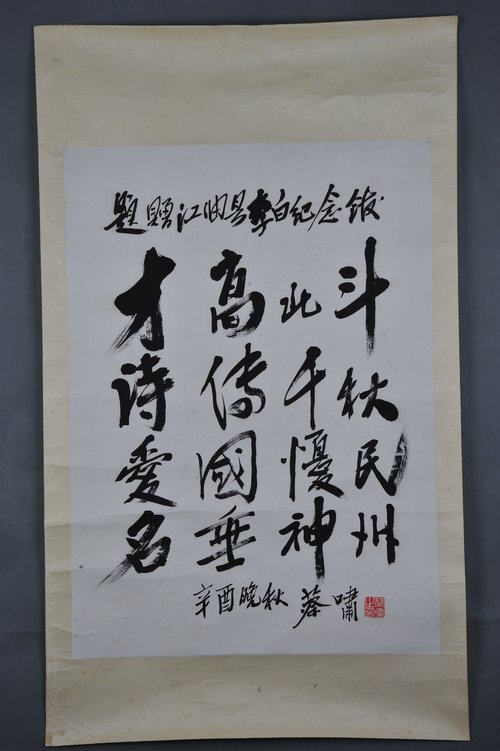 題贈江油县李白纪念馆
才高北斗
诗傳千秋
愛國懮民
名垂神州
辛酉晚秋 蔡嘯